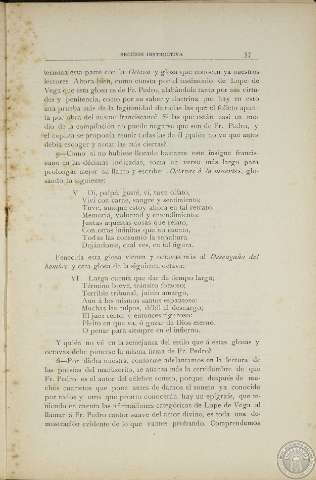 SECCIÓN INSTRUCTIVA 57
termina esta parte con la Octava y glosa que conocen ya nuestros
lectores. Ahora bien, como consta por el testimonio de Lope de
Vega que esta glosa es de Fr. Pedro, alabándole tanto por sus virtu-
des y penitencia, como por su saber y doctrina que hay en esto
una prueba más de la legitimidad de todas las que el folleto apun-
ta por obra del mismo franciscano. Si las que están
dio de la compilación no puede negarse que son de Fr. Pedro, y
el copista se proponía reunir todas las de él ¿quién no ve que antes
debía escoger y notar las más ciertas?
5—Como si no hubiese llorado bastante este insigne francis-
cano en las décimas indicadas, toma un verso más largo para
prolongar mejor su llanto y escribe Octavas á la muerte, glo-
sando la siguiente:
V Oí, palpé, gusté, ví, tuve olfato,
Viví con carne, sangre y sentimiento;
Tuve, aunque estoy ahora en tal retrato,
Memoria, voluntad y entendimiento;
Juntas aquestas cosas que relato,
Con otras infinitas que no cuento,
Todas las consumió la sepultura,
Dejándome, cual ves, en tal figura.
Fenecida esta glosa vienen 7 octavas más al Desengaño del
hombre y otra glosa de la siguiente octava:
VI Larga cuenta que dar de tiempo largo;
Término breve, tránsito forzoso;
Terrible tribunal, juicio amargo,
Aun á los mismos santos espantoso;
Muchas las culpas, débil el descargo,
El juez recto, y entonces riguroso;
Pleito en que va, ó gozar de Dios eterno
Ó penar para siempre en el infierno.
Y quién no vé en la semejanza del estilo que á estas glosas y
octavas debe ponerse la misma firma de Fr. Pedro?
6—Por dicha nuestra, conforme adelantamos en la lectura de
las poesías del manuscrito, se afianza más la certidumbre de que
Fr. Pedro es el autor del célebre soneto, porque después de mu-
chos cuartetos que pone antes de darnos el soneto ya conocido
por todos y otros que pronto conocerán, hay un epígrafe, que te-
niendo en cuenta las afirmaciones categóricas de Lope de Vega al
llamar á Fr. Pedro cantor suave del amor divino, es toda una de-
mostración evidente de lo que vamos probando. Comprendemos